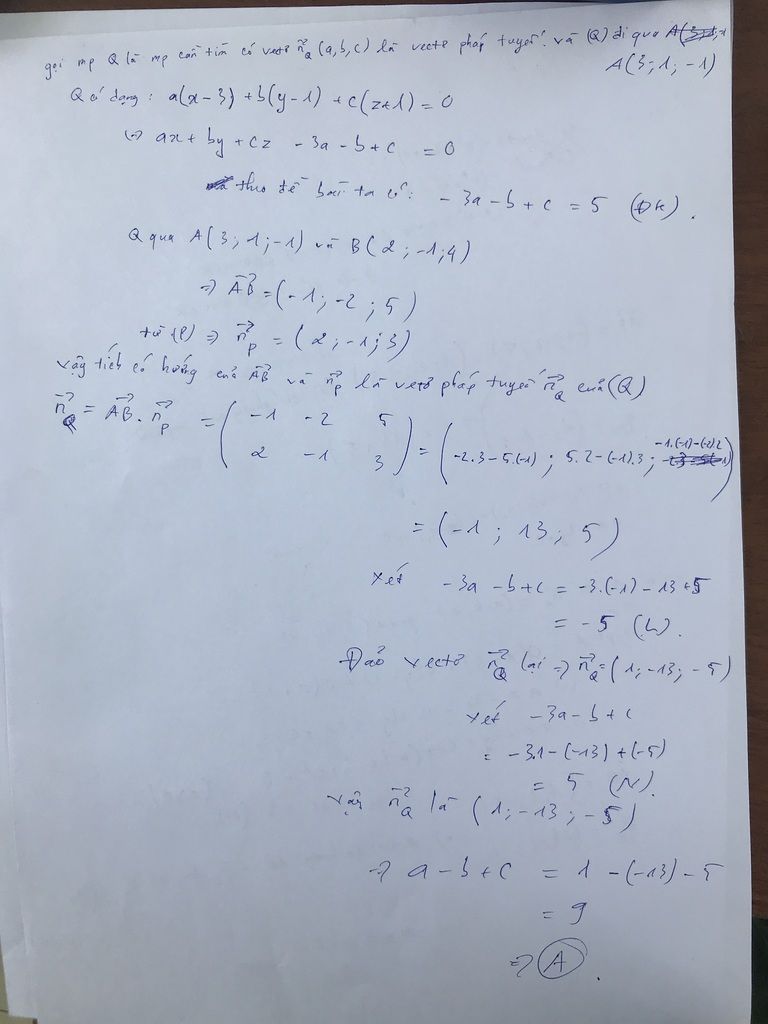 gọi mp Q là mp cần tìm có vectơ n⃗_Q (a,b,c) là vectơ pháp tuyến. và (Q) đi qua
A(3;1;-1)
Q có dạng: a(x-3)+b(y-1)+c(z+1)=0
⇔ ax+by+cz -3a-b+c =0
theo đề bài ta có: -3a-b+c=5 (ĐK).
Q qua A(3;1;-1) và B(2;-1;4)
⇒ A⃗B=(-1;-2;5)
từ (P) ⇒ n⃗_p = (2;-1;3)
Vậy tích có hướng của A⃗B và n⃗_p là vectơ pháp tuyến n⃗_Q của (Q)
n⃗_Q = A⃗B. n⃗_p = (-1 -2 5
2 -1 3) = (-2.3-5.(-1); 5.2-(-1).3; -1.(-1)-(-2)2)
= (-1; 13; 5)
xét -3a-b+c = -3.(-1)-13+5
= -5 (L).
Đảo vectơ n⃗_Q lại ⇒ n⃗_Q=(1;-13;-5)
xét -3a-b+c
= -3.1-(-13)+(-5)
= 5 (N).
vậy n⃗_Q là (1;-13;-5)
⇒ a-b+c = 1-(-13)-5
= 9
⇒ A.